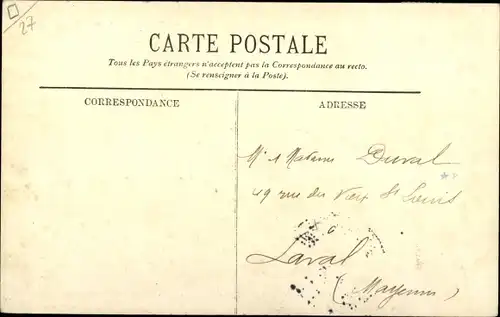 27
CARTE POSTALE
Tous les Pays étrangers n'acceptent pas la Correspondance au recto.
(Se renseigner à la Poste).
CORRESPONDANCE
ADRESSE
Mr & Madame Duval
49 rue du Vieux St Louis
à
Laval
(Mayenne)